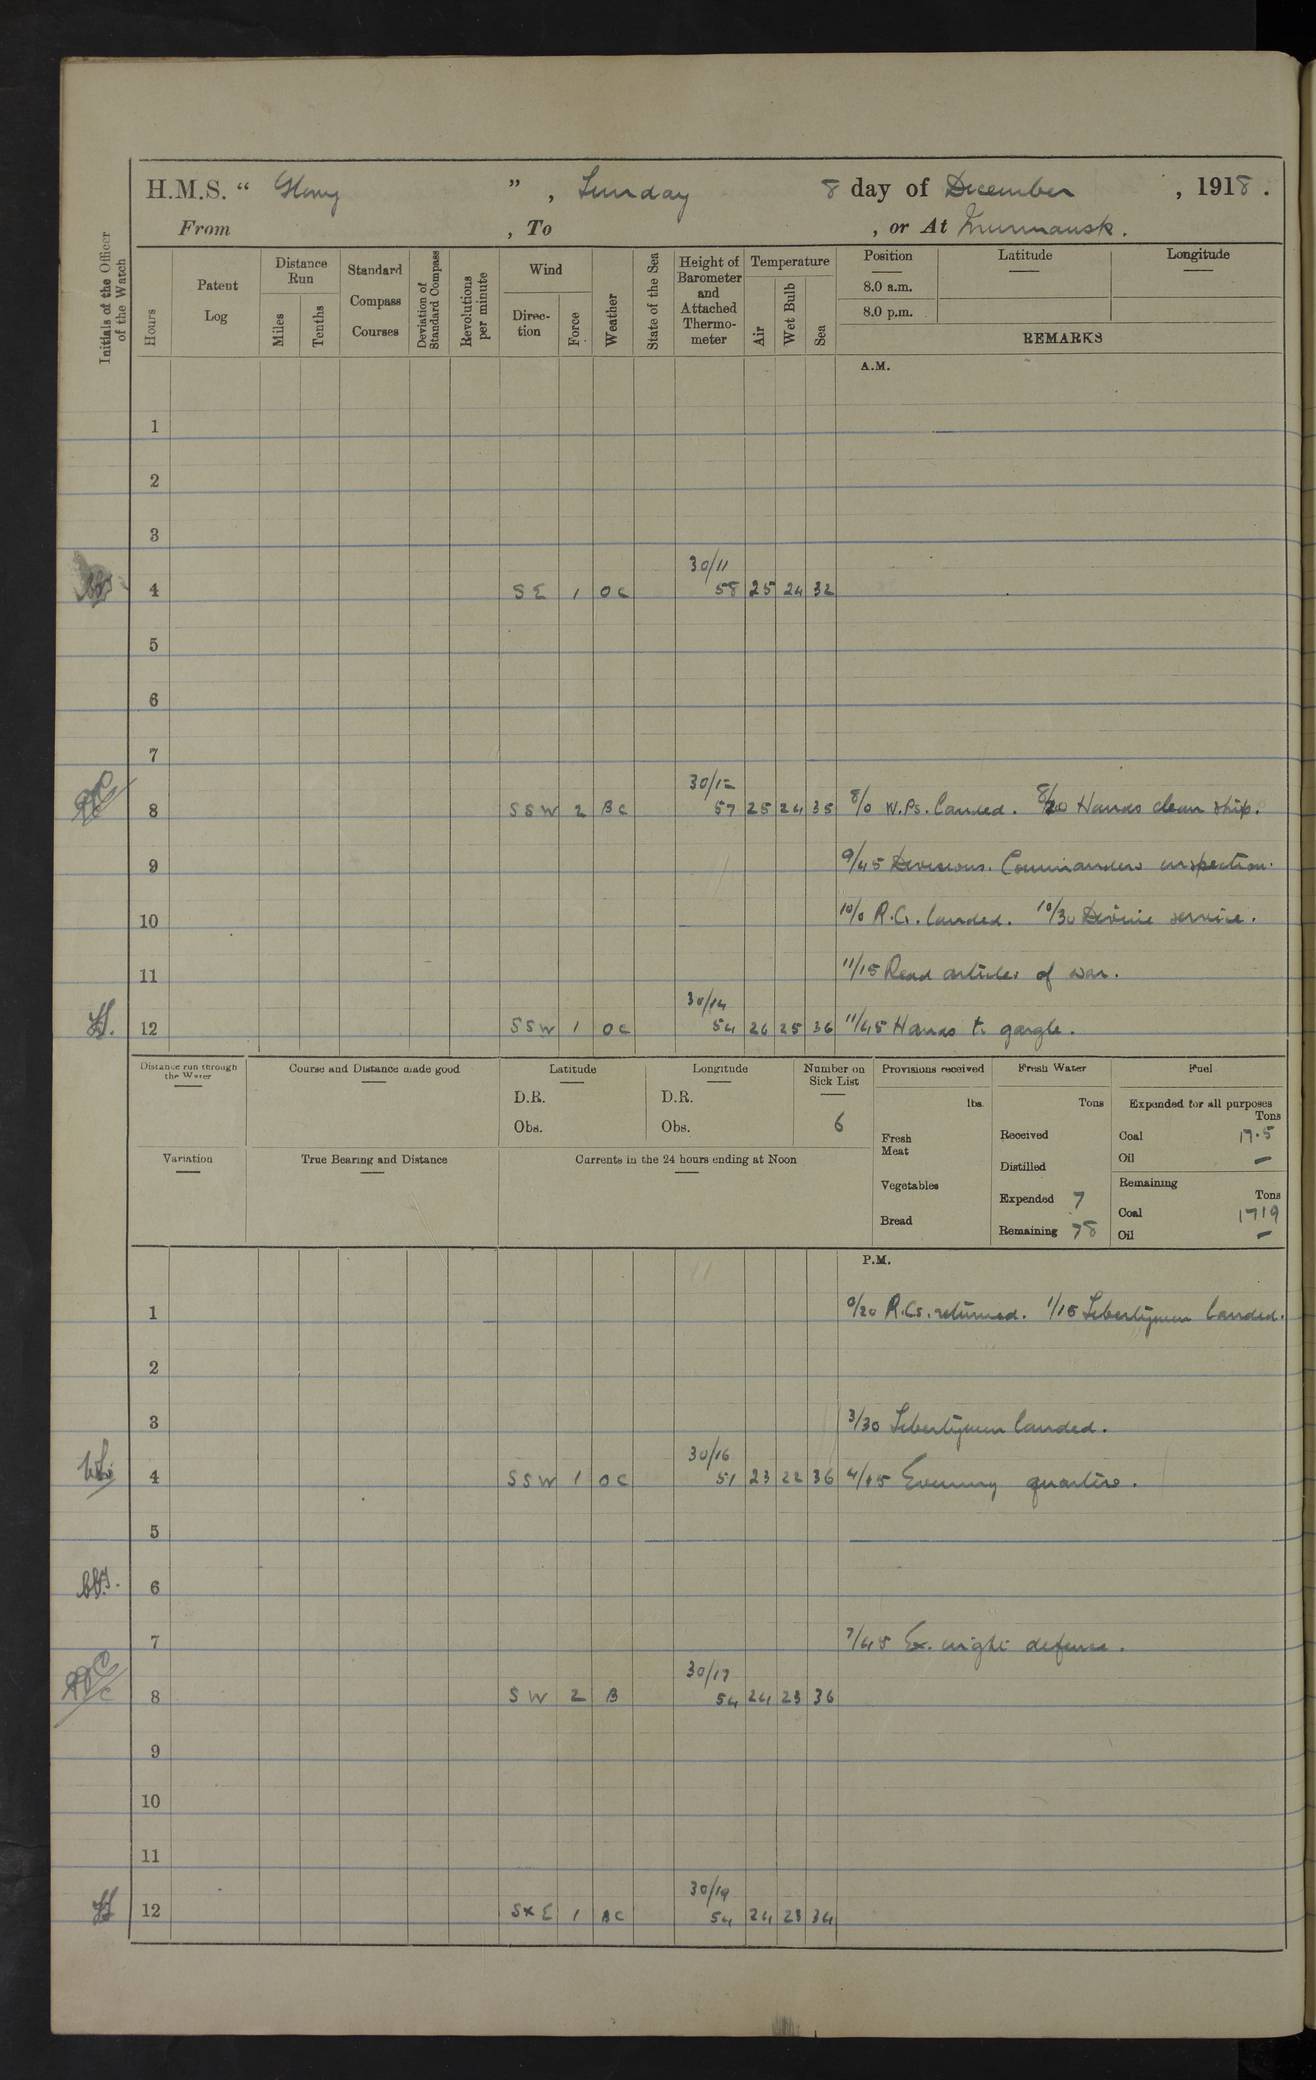 H.M.S. " Glory " , Sunday 8 day of December , 1918 .
From , To , or At Murmansk .
Initials of the Officer of the Watch
Hours
Patent Log
Distance Run
Miles
Tenths
Standard Compass Courses
Deviation of Standard Compass
Revolutions per minute
Wind
Direction
Force
Weather
State of the Sea
Height of Barometer and Attached Thermometer
Temperature
Air
Wet Bulb
Sea
Position Latitude Longitude
8.0 a.m.
8.0 p.m.
REMARKS
A.M.
1
2
3
30/11
4 SE 1 OC 58 25 24 32
5
6
7
30/12
8 SSW 2 BC 57 25 24 35 8/0 W.Ps. landed. 8/20 Hands clean ship.
9 9/45 Divisions. Commanders inspection.
10 10/0 R.Cs. landed. 10/30 Divine service.
11 11/15 Read articles of war.
30/14
12 SSW 1 OC 54 26 25 36 11/45 Hands to gargle.
Distance run through the Water
Course and Distance made good
Latitude
D.R.
Obs.
Longitude
D.R.
Obs.
Number on Sick List
6
Variation
True Bearing and Distance
Currents in the 24 hours ending at Noon
Provisions received
lbs.
Fresh Meat
Vegetables
Bread
Fresh Water
Tons
Received
Distilled
Expended 7
Remaining 78
Fuel
Expended for all purposes
Tons
Coal 17.5
Oil —
Remaining
Tons
Coal 1719
Oil —
P.M.
1 0/20 R.Cs. returned. 1/15 Libertymen landed.
2
3 3/30 Libertymen landed.
30/16
4 SSW 1 OC 51 23 22 36 4/15 Evening quarters.
5
6
7 7/45 Ex. night defence.
30/17
8 SW 2 B 54 24 23 36
9
10
11
30/19
12 SxE 1 BC 54 24 23 34